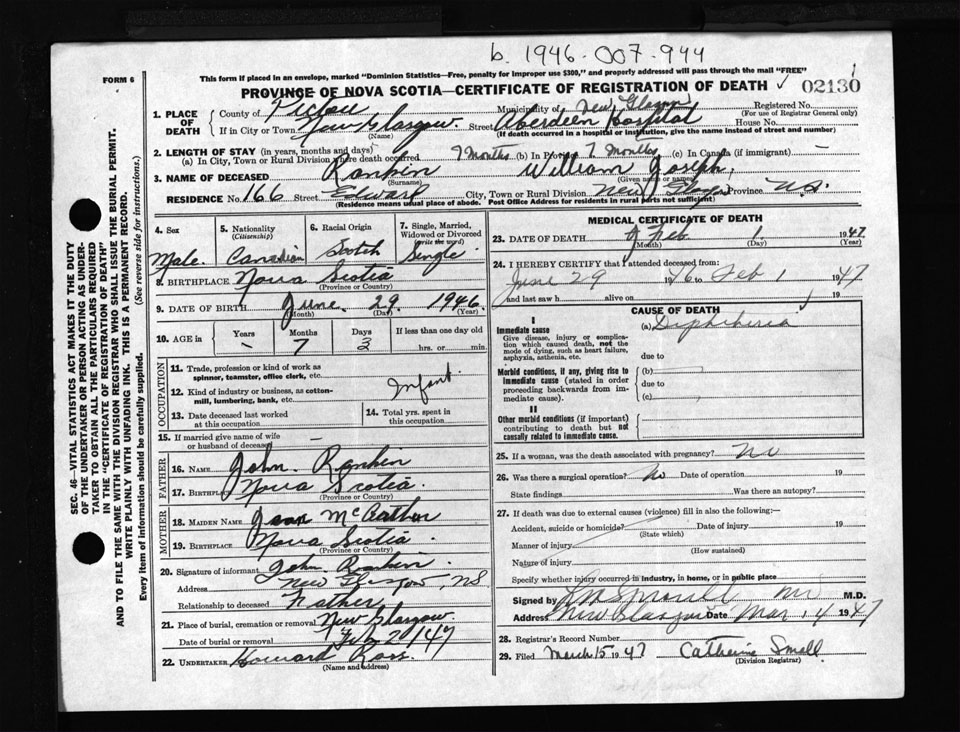 b. 1946-007-944
FORM 6
This form if placed in an envelope, marked "Dominion Statistics—Free, penalty for improper use $300," and properly addressed will pass through the mail "FREE"
PROVINCE OF NOVA SCOTIA—CERTIFICATE OF REGISTRATION OF DEATH ✓ 02130
1. PLACE OF DEATH
County of Pictou Municipality of New Glasgow Registered No.
(For use of Registrar General only)
If in City or Town New Glasgow Street Aberdeen Hospital House No.
(Name) (If death occurred in a hospital or institution, give the name instead of street and number)
2. LENGTH OF STAY (in years, months and days)
(a) In City, Town or Rural Division where death occurred 7 Months (b) In Province 7 Months (c) In Canada (if immigrant) —
3. NAME OF DECEASED Rankin William Joseph,
(Surname) (Given name or names)
RESIDENCE No. 166 Street Edward City, Town or Rural Division New Glasgow Province N.S.
(Residence means usual place of abode. Post Office Address for residents in rural parts not sufficient)
4. Sex Male.
5. Nationality (Citizenship) Canadian
6. Racial Origin Scotch
7. Single, Married, Widowed or Divorced (Write the word) Single
8. BIRTHPLACE Nova Scotia
(Province or Country)
9. DATE OF BIRTH June 29 1946
(Month) (Day) (Year)
10. AGE in Years Months Days If less than one day old
— 7 3 hrs. or min.
OCCUPATION
11. Trade, profession or kind of work as spinner, teamster, office clerk, etc.
12. Kind of industry or business, as cotton-mill, lumbering, bank, etc.
Infant
13. Date deceased last worked at this occupation
14. Total yrs. spent in this occupation
15. If married give name of wife or husband of deceased —
FATHER
16. NAME John Rankin
17. BIRTHPLACE Nova Scotia
(Province or Country)
MOTHER
18. MAIDEN NAME Jean
19. BIRTHPLACE Nova Scotia
(Province or Country)
20. Signature of informant John Rankin
Address New Glasgow, NS
Relationship to deceased Father
21. Place of burial, cremation or removal New Glasgow
Date of burial or removal Feb 2/47
22. UNDERTAKER Howard Ross
(Name and address)
MEDICAL CERTIFICATE OF DEATH
23. DATE OF DEATH Feb 1 1947
(Month) (Day) (Year)
24. I HEREBY CERTIFY that I attended deceased from:
June 29 1946 to Feb 1 1947
and last saw h alive on 19
CAUSE OF DEATH
I
Immediate cause
Give disease, injury or complication which caused death, not the mode of dying, such as heart failure, asphyxia, asthenia, etc.
(a) Diphtheria
due to
Morbid conditions, if any, giving rise to immediate cause (stated in order proceeding backwards from immediate cause).
(b)
due to
(c)
II
Other morbid conditions (if important) contributing to death but not causally related to immediate cause.
25. If a woman, was the death associated with pregnancy? No
26. Was there a surgical operation? No Date of operation 19
State findings Was there an autopsy?
27. If death was due to external causes (violence) fill in also the following:—
Accident, suicide or homicide? Date of injury 19
(State which)
Manner of injury
(How sustained)
Nature of injury
Specify whether injury occurred in industry, in home, or in public place
Signed by M.D.
Address New Glasgow Date Mar 14 1947
28. Registrar's Record Number
29. Filed March 15 1947 Catherine Small
(Division Registrar)
SEC. 46—VITAL STATISTICS ACT MAKES IT THE DUTY
OF THE UNDERTAKER OR PERSON ACTING AS UNDER-
TAKER TO OBTAIN ALL THE PARTICULARS REQUIRED
IN THE "CERTIFICATE OF REGISTRATION OF DEATH"
AND TO FILE THE SAME WITH THE DIVISION REGISTRAR WHO SHALL ISSUE THE BURIAL PERMIT.
WRITE PLAINLY WITH UNFADING INK. THIS IS A PERMANENT RECORD.
Every item of information should be carefully supplied. (See reverse side for instructions.)